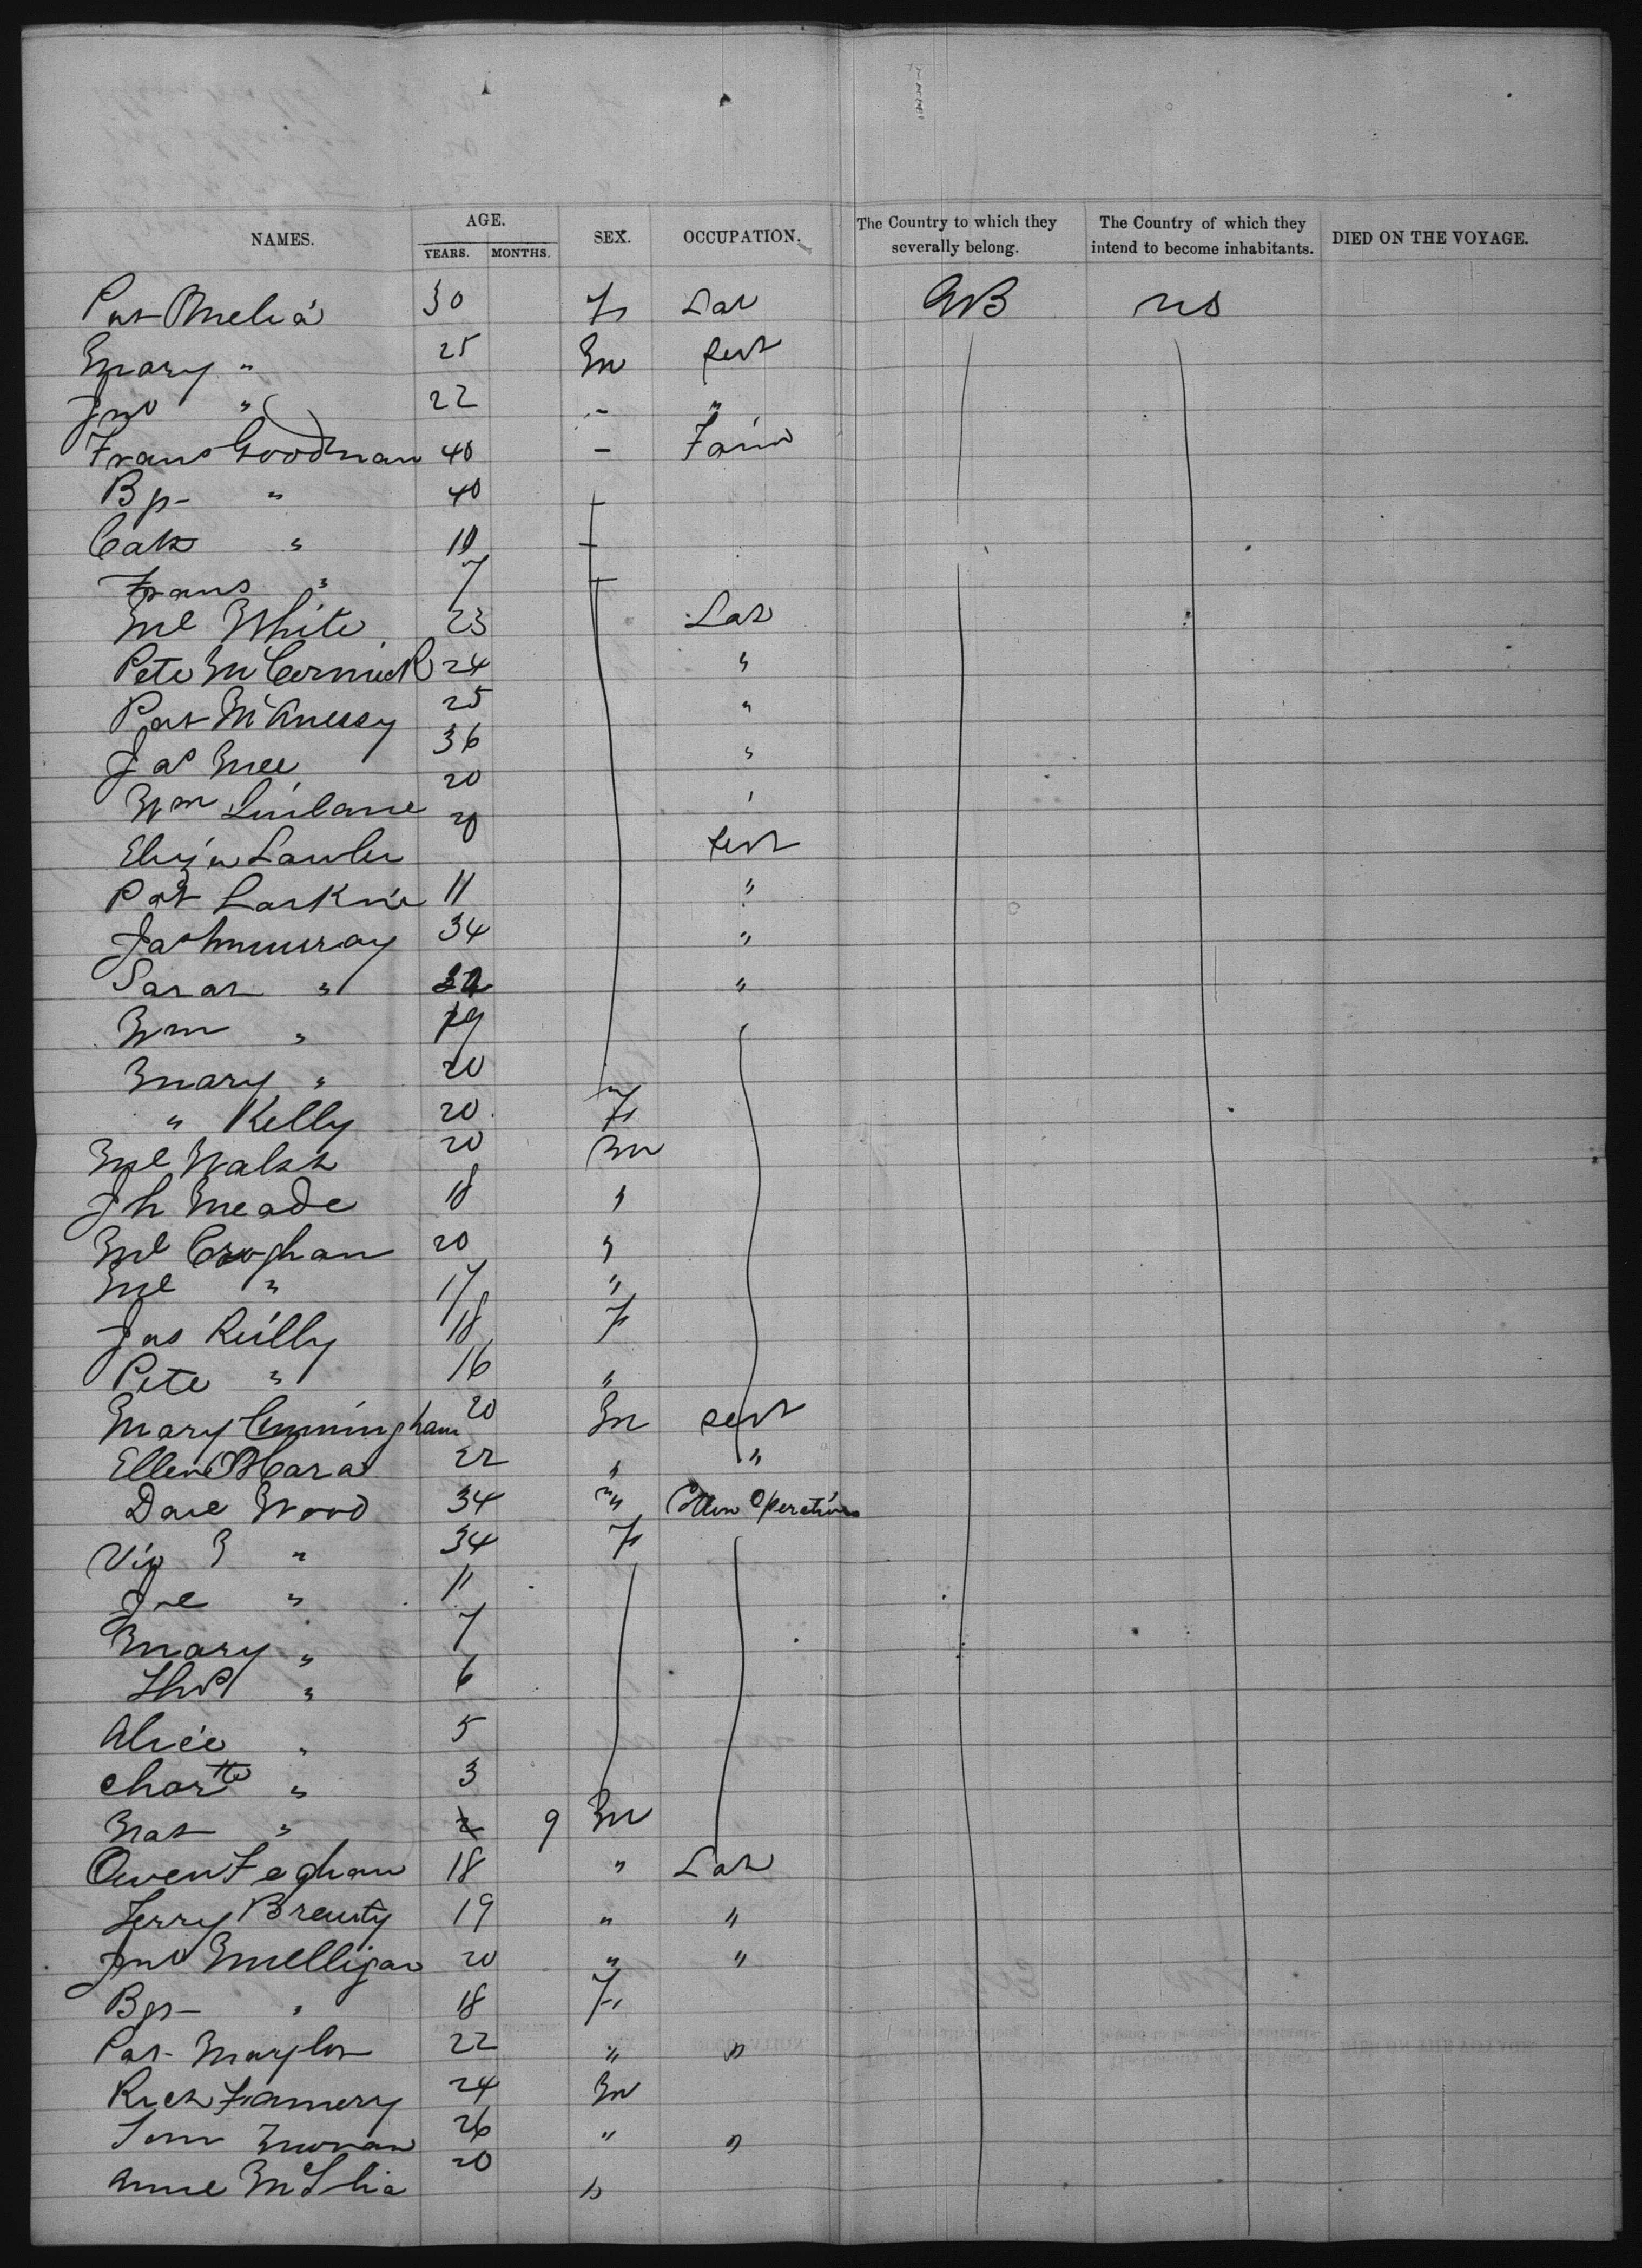 NAMES. AGE. YEARS. MONTHS. SEX. OCCUPATION. The Country to which they severally belong. The Country of which they intend to become inhabitants. DIED ON THE VOYAGE.
Pat Omelia 30 F Lab GB US
Mary " 25 M Sert
Jno " 22 - "
Frans Goodman 40 - Farm
Bgt " 40
Cath " 10
Frans " 7
Ml White 23 Lab
Pete McCormick 24 "
Pat 25 "
Jas Mee 36 "
Wm 20 "
Eliza Lawler 20 Sert
Pat Larkin 11 "
Jas Murray 34 "
Sarah " "
Wm " 19
Mary " 20
" Kelly 20 F
Ml Walsh 20 M
Jh Meade 18 "
Ml Croghan 20 "
Ml " 17 "
Jas Reilly 18 F
Pete " 16 "
Mary Cunningham 20 M Sert
Ellen OHara 22 " "
Dave Wood 34 " Cotten Operative
34 F
Joe " 11
Mary " 7
Thos " 6
Alice " 5
Chartte " 3
Nat " 9 M
Owen Feghan 18 " Lab
Terry 19 " "
Jno Mulligan 20 " "
Bgt " 18 F
Pat 22 " "
Rich Flannery 24 M
Tom Moran 26 " "
Anne 20 "